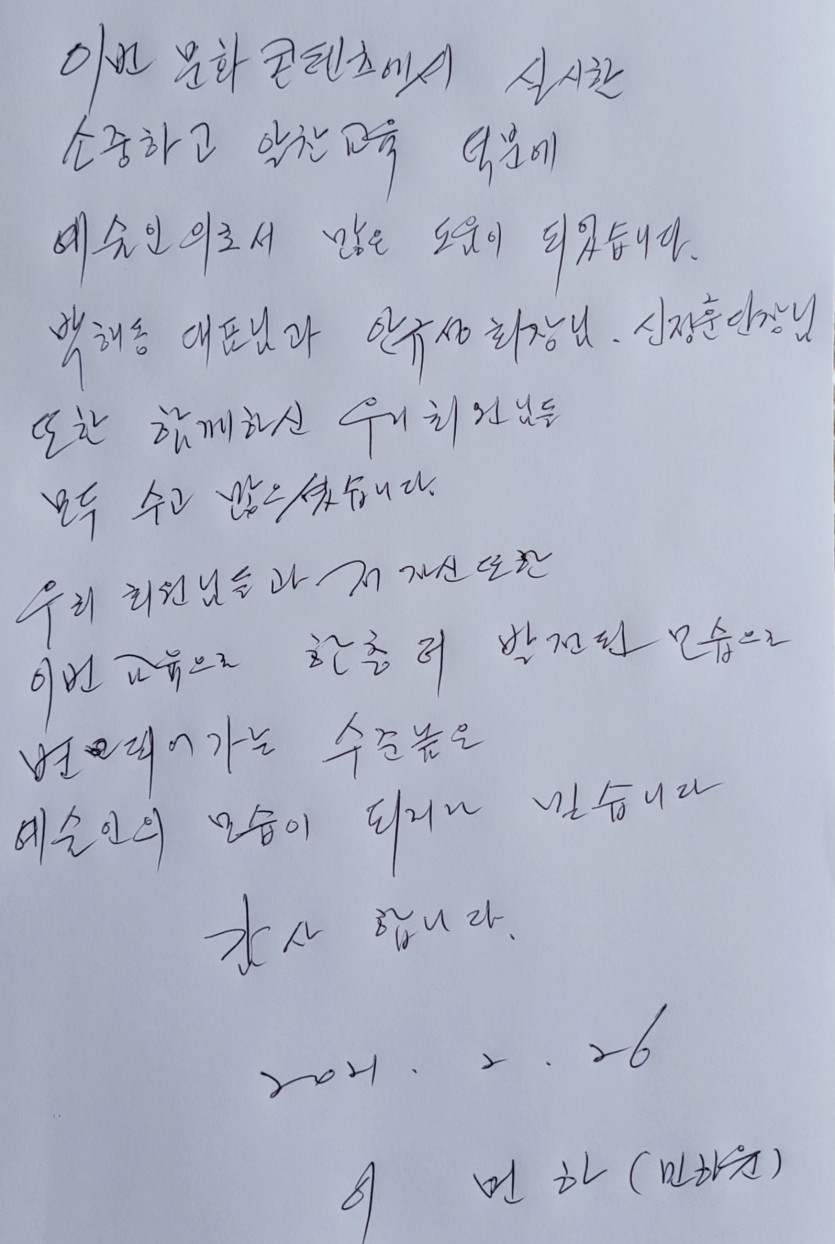 이번 문화콘텐츠에서 실시한
소중하고 알찬교육 덕분에
예술인의로서 많은 도움이 되었습니다.
백해동 대표님과 안규성회장님. 신정훈단장님
또한 함께하신 우리회원님들
모두 수고 많으셨습니다.
우리 회원님들과 저 자신또한
이번 교육으로 한층 더 발전된 모습으로
변되어가는 수준높은
예술인의 모습이 되리라 믿습니다
감사 합니다.
2021. 2. 26
이 먼 하 (민하윤)